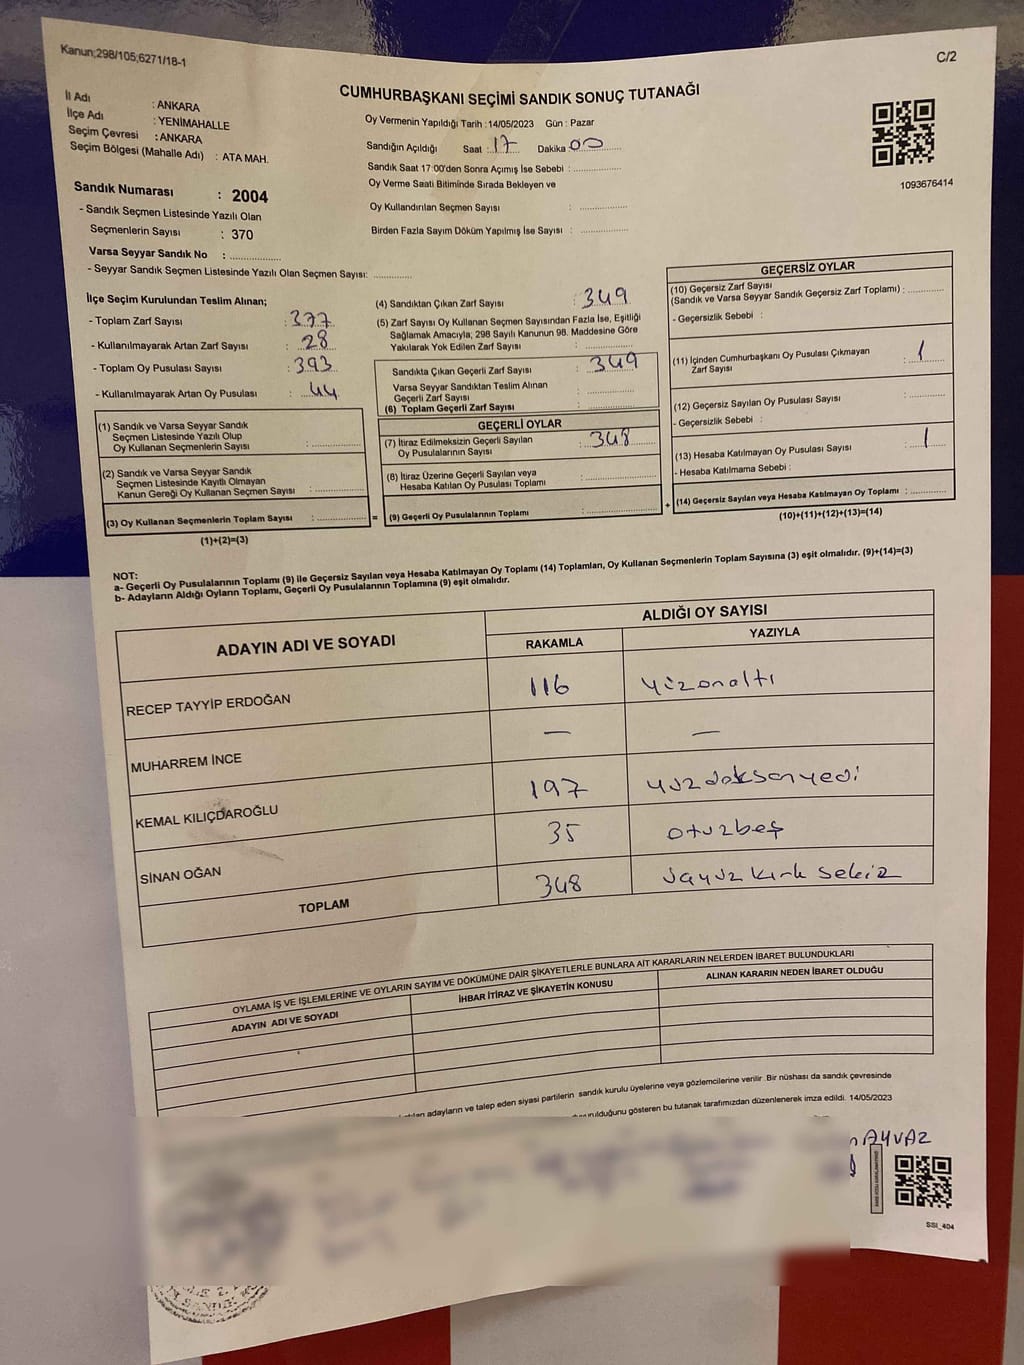 Kanun;298/105;6271/18-1
C/2
CUMHURBAŞKANI SEÇİMİ SANDIK SONUÇ TUTANAĞI
İl Adı : ANKARA
İlçe Adı : YENİMAHALLE
Seçim Çevresi : ANKARA
Seçim Bölgesi (Mahalle Adı) : ATA MAH.
Oy Vermenin Yapıldığı Tarih : 14/05/2023 Gün : Pazar
Sandığın Açıldığı Saat : 17 Dakika 00
Sandık Saat 17:00'den Sonra Açımış İse Sebebi : ..............
Oy Verme Saati Bitiminde Sırada Bekleyen ve
Oy Kullandırılan Seçmen Sayısı : ..............
Birden Fazla Sayım Döküm Yapılmış İse Sayısı : ..............
1093676414
Sandık Numarası : 2004
- Sandık Seçmen Listesinde Yazılı Olan
Seçmenlerin Sayısı : 370
Varsa Seyyar Sandık No : ..............
- Seyyar Sandık Seçmen Listesinde Yazılı Olan Seçmen Sayısı: ..............
İlçe Seçim Kurulundan Teslim Alınan;
- Toplam Zarf Sayısı : 377
- Kullanılmayarak Artan Zarf Sayısı : 28
- Toplam Oy Pusulası Sayısı : 393
- Kullanılmayarak Artan Oy Pusulası : 44
(1) Sandık ve Varsa Seyyar Sandık
Seçmen Listesinde Yazılı Olup
Oy Kullanan Seçmenlerin Sayısı : ..............
(2) Sandık ve Varsa Seyyar Sandık
Seçmen Listesinde Kayıtlı Olmayan
Kanun Gereği Oy Kullanan Seçmen Sayısı : ..............
(3) Oy Kullanan Seçmenlerin Toplam Sayısı : ..............
(1)+(2)=(3)
(4) Sandıktan Çıkan Zarf Sayısı : 349
(5) Zarf Sayısı Oy Kullanan Seçmen Sayısından Fazla İse, Eşitliği
Sağlamak Amacıyla; 298 Sayılı Kanunun 98. Maddesine Göre
Yakılarak Yok Edilen Zarf Sayısı : ..............
Sandıkta Çıkan Geçerli Zarf Sayısı : 349
Varsa Seyyar Sandıktan Teslim Alınan
Geçerli Zarf Sayısı : ..............
(6) Toplam Geçerli Zarf Sayısı : ..............
GEÇERLİ OYLAR
(7) İtiraz Edilmeksizin Geçerli Sayılan
Oy Pusulalarının Sayısı : 348
(8) İtiraz Üzerine Geçerli Sayılan veya
Hesaba Katılan Oy Pusulası Toplamı : ..............
= (9) Geçerli Oy Pusulalarının Toplamı : ..............
GEÇERSİZ OYLAR
(10) Geçersiz Zarf Sayısı
(Sandık ve Varsa Seyyar Sandık Geçersiz Zarf Toplamı) : ..............
- Geçersizlik Sebebi :
(11) İçinden Cumhurbaşkanı Oy Pusulası Çıkmayan
Zarf Sayısı : 1
(12) Geçersiz Sayılan Oy Pusulası Sayısı : ..............
- Geçersizlik Sebebi :
(13) Hesaba Katılmayan Oy Pusulası Sayısı : 1
- Hesaba Katılmama Sebebi :
+ (14) Geçersiz Sayılan veya Hesaba Katılmayan Oy Toplamı : ..............
(10)+(11)+(12)+(13)=(14)
NOT:
a- Geçerli Oy Pusulalarının Toplamı (9) ile Geçersiz Sayılan veya Hesaba Katılmayan Oy Toplamı (14) Toplamları, Oy Kullanan Seçmenlerin Toplam Sayısına (3) eşit olmalıdır. (9)+(14)=(3)
b- Adayların Aldığı Oyların Toplamı, Geçerli Oy Pusulalarının Toplamına (9) eşit olmalıdır.
ADAYIN ADI VE SOYADI ALDIĞI OY SAYISI
RAKAMLA YAZIYLA
RECEP TAYYİP ERDOĞAN 116 yüzonaltı
MUHARREM İNCE — —
KEMAL KILIÇDAROĞLU 197 yüzdoksanyedi
SİNAN OĞAN 35 otuzbeş
TOPLAM 348 üçyüz kırk sekiz
OYLAMA İŞ VE İŞLEMLERİNE VE OYLARIN SAYIM VE DÖKÜMÜNE DAİR ŞİKAYETLERLE BUNLARA AİT KARARLARIN NELERDEN İBARET BULUNDUKLARI
ADAYIN ADI VE SOYADI İHBAR İTİRAZ VE ŞİKAYETİN KONUSU ALINAN KARARIN NEDEN İBARET OLDUĞU
adayların ve talep eden siyasi partilerin sandık kurulu üyelerine veya gözlemcilerine verilir. Bir nüshası da sandık çevresinde
olduğunu gösteren bu tutanak tarafımızdan düzenlenerek imza edildi. 14/05/2023
AYVAZ
SSI_404